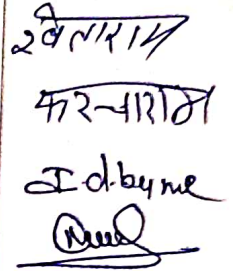 खेताराम
करनाराम
I.d. by me